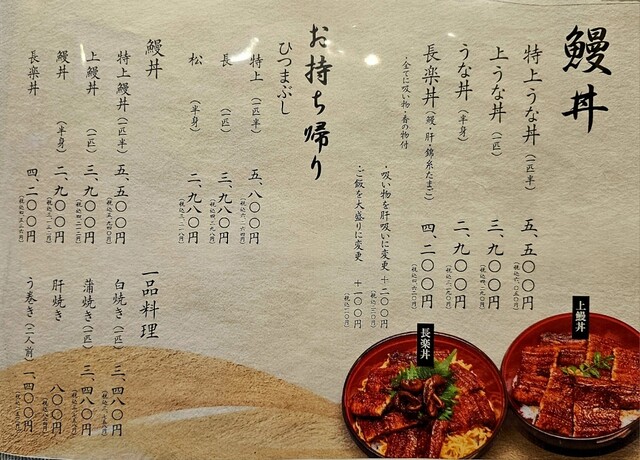 鰻丼
特上うな丼(一匹半) 五、五〇〇円
(税込六、〇五〇円)
上うな丼(一匹) 三、九〇〇円
(税込四、二九〇円)
うな丼(半身) 二、九〇〇円
(税込三、一九〇円)
長楽丼(鰻・肝・錦糸たまご) 四、二〇〇円
(税込四、六二〇円)
(全てに吸い物・香の物付
・吸い物を肝吸いに変更 +二〇〇円
(税込二二〇円)
・ご飯を大盛りに変更 +一〇〇円
(税込一一〇円)
お持ち帰り
ひつまぶし
特上(一匹半) 五、八〇〇円
(税込六、二六四円)
長(一匹) 三、九八〇円
松(半身) 二、九八〇円
(税込三、二一八円)
鰻丼
特上鰻丼(一匹半) 五、五〇〇円
(税込五、九四〇円)
上鰻丼(一匹) 三、九〇〇円
(税込四、二一二円)
鰻丼(半身) 二、九〇〇円
(税込三、一三二円)
長楽丼 四、二〇〇円
(税込四、五三六円)
一品料理
白焼き(一匹) 三、四八〇円
蒲焼き(一匹) 三、四八〇円
肝焼き 八〇〇円
う巻き(二人前) 一、四〇〇円
上鰻丼
長楽丼